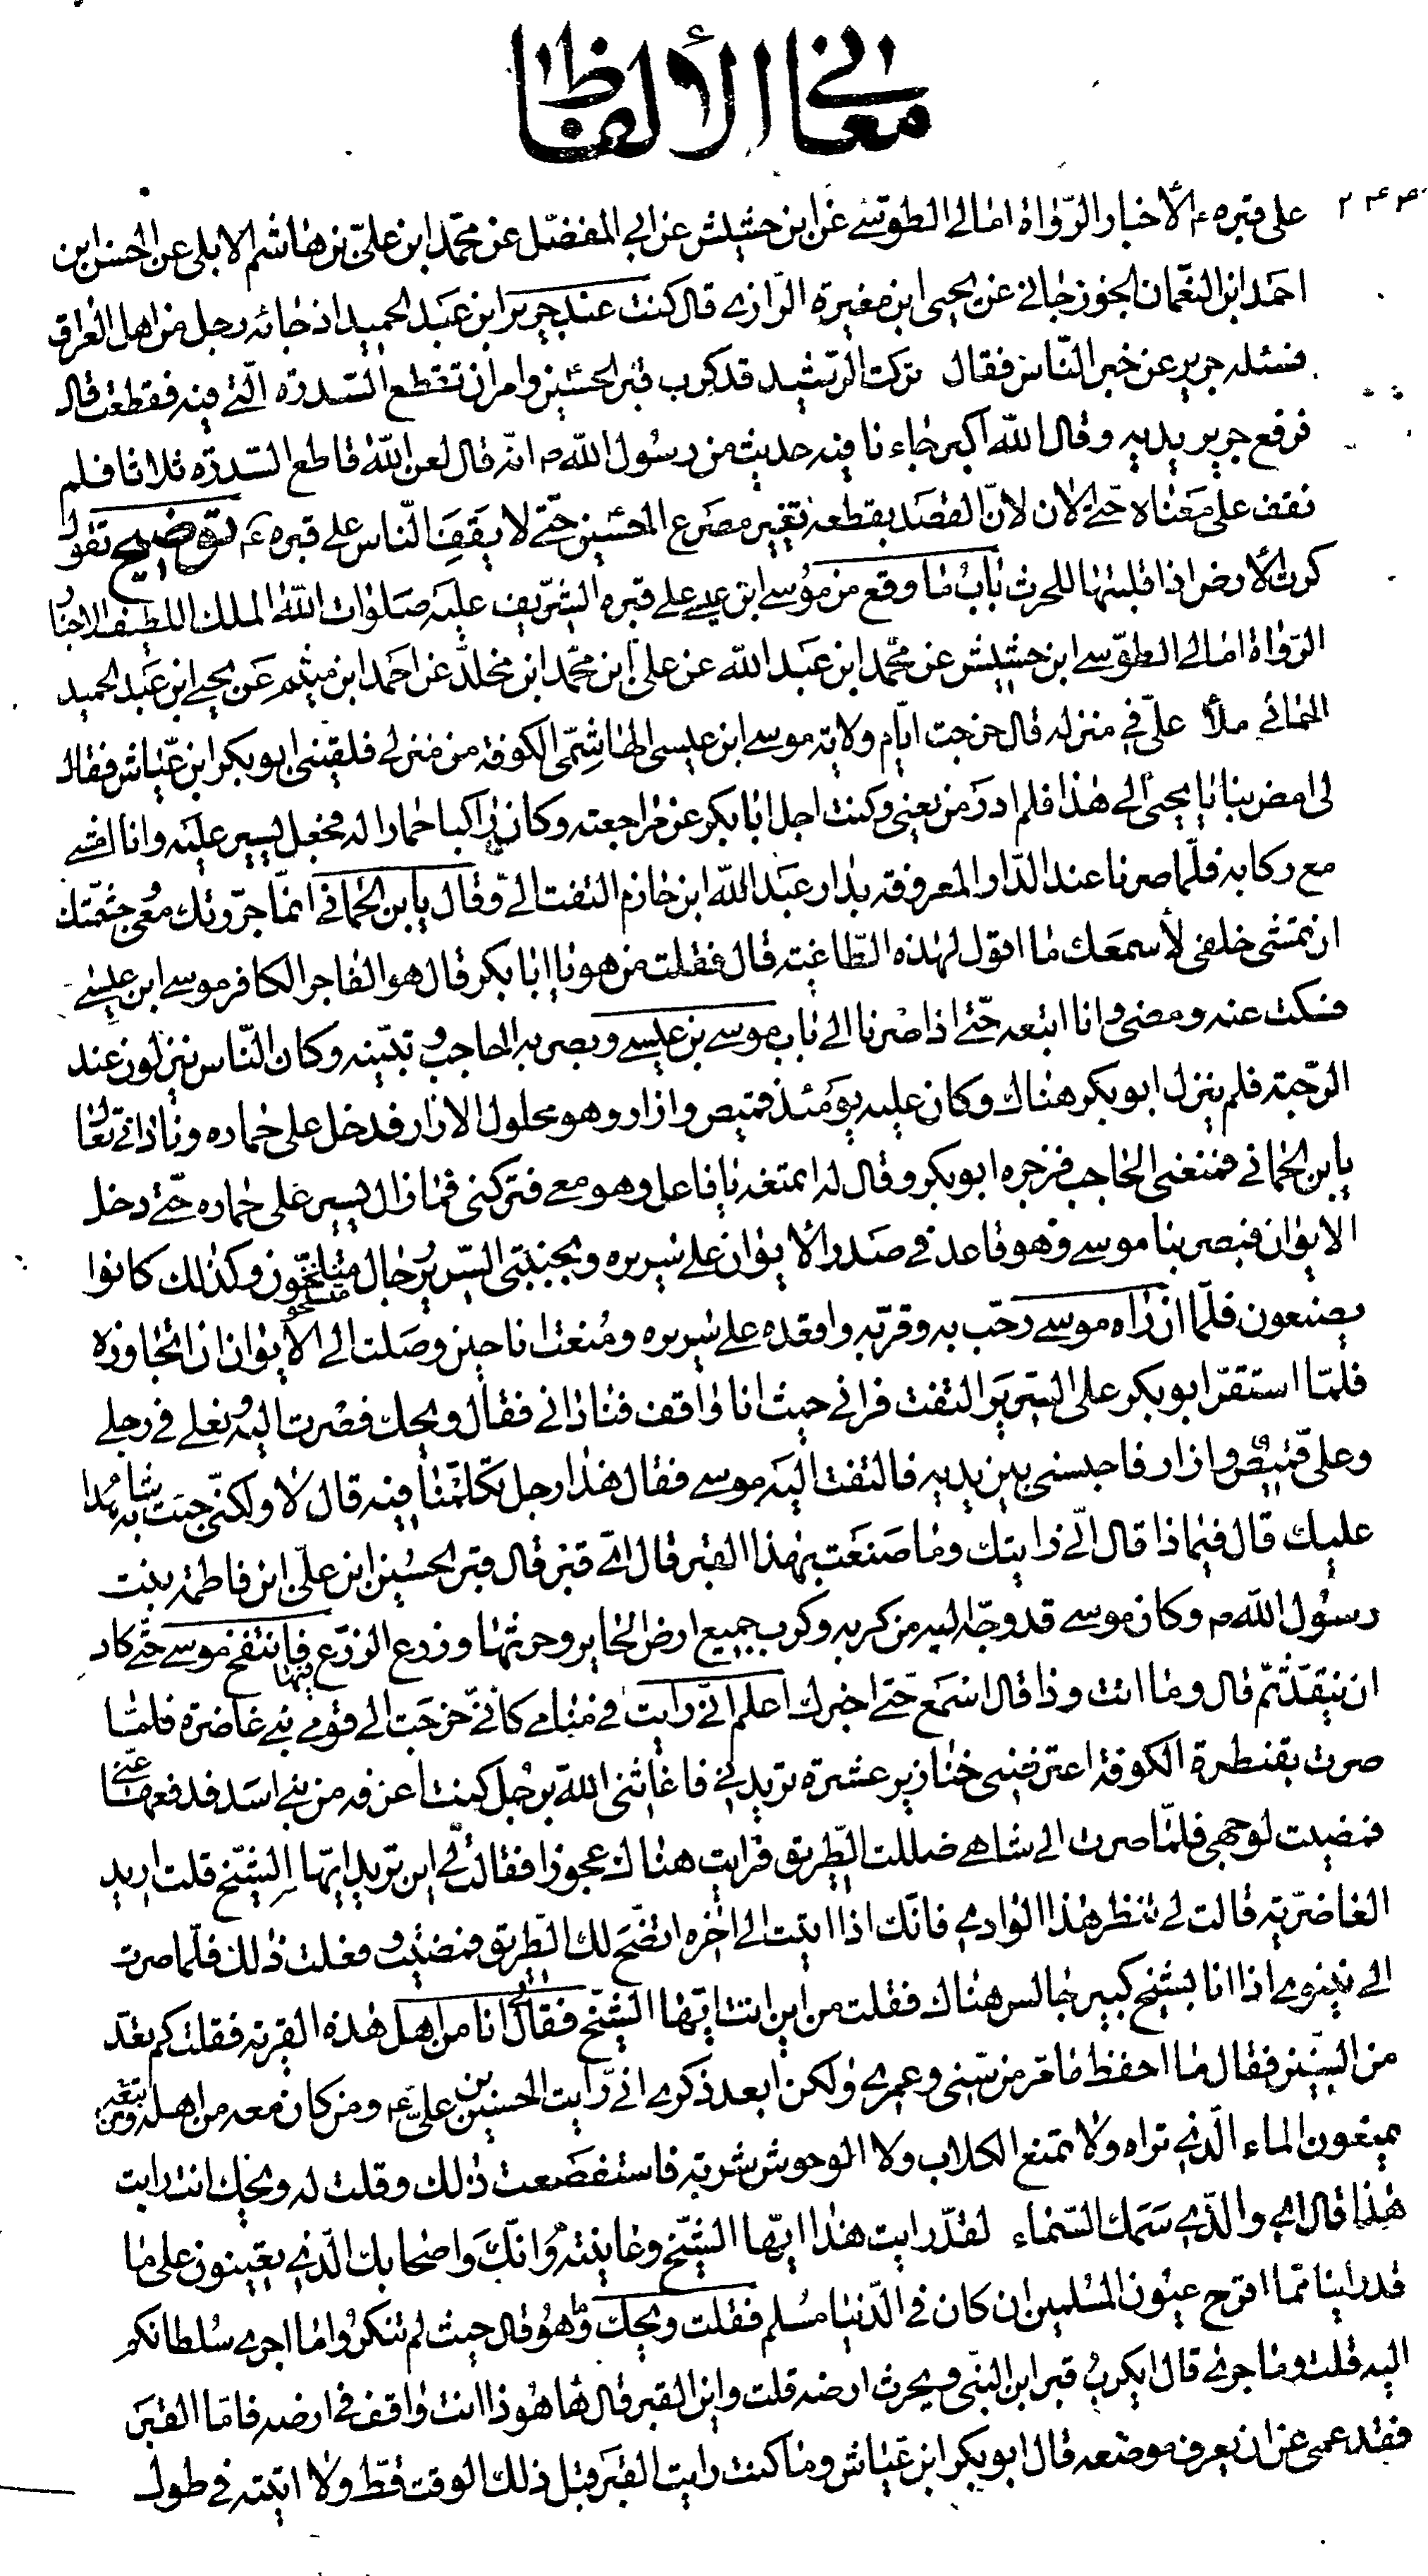 معاني الألفاظ
٢٤٣
على قبره ع الأخبار الرّواة امالى الطوّسے عن ابن حشيش عن ابي المفضّل عن محمّد ابن علىّ بن هاشم الابلى عن الحسن ابن
احمد ابن النعّمان الجوزجانى عن يحيى ابن مغيرة الرّازے قال كنت عند جرير ابن عبد الحميد اذ جائه رجل من اهل العراق
فسئله جرير عن خبر النّاس فقال تركت الرّشيد قد كرب قبر الحسين وامر ان تقطع السّدرة الّتے فيه فقطعت قال
فرفع جرير يديه وقال اللّه اكبر جاءنا فيه حديث من رسول اللّه ص انّه قال لعن اللّه قاطع السّدرة ثلاثا فلم
نقف على معناه حتّے الان لانّ القصد بقطعه تغيير مصرع الحسين حتّے لا يقف النّاس على قبره ع توضيح تقول
كربت الأرض اذا قلبتها للحرث باب ما وقع من موسے ابن عيسے على قبره الشريف عليه صلوات اللّه الملك اللطيف الاخبار
الرّواة امالى الطوّسے ابن حشيش عن محمّد ابن عبد اللّه عن علىّ ابن محمّد ابن مخلّد عن احمد ابن ميثم عن يحيے ابن عبد الحميد
الحمانے ملأ علىّ فے منزله قال خرجت ايّام ولاية موسے ابن عيسى الهاشمى الكوفة من منزلى فلقينى ابو بكر ابن عيّاش فقال
لى امض بنا يا يحيى الى هذا فلم ادر من يعنى وكنت اجل ابا بكر عن مراجعته وكان راكبا حمارا له فجعل يسير عليه وانا امشے
مع ركابه فلمّا صرنا عند الدّار المعروفة بدار عبد اللّه ابن حازم التفت الىّ وقال يابن الحمانى انمّا جررتك معى وجشمتك
ان تمشى خلفى لأسمعك ما اقول لهذه الطّاغية قال فقلت من هو يا ابا بكر قال هو الفاجر الكافر موسے ابن عيسے
فسكت عنه ومضى وانا اتبعه حتّے اذا صرنا الى باب موسے بن عيسے وبصر به الحاجب وتبيّنه وكان النّاس ينزلون عند
الرّحبة فلم ينزل ابو بكر هناك وكان عليه يومئذ قميص وازار وهو محلول الازار فدخل على حماره ونادانى تعال
يابن الحمانى فمنعنى الحاجب فزجره ابو بكر وقال له اتمنعه يا فاعل وهو معے فتركنى فما زال يسير على حماره حتّے دخل
الايوان فبصر بنا موسے وهو قاعد فے صدر الأيوان على سريره وبجنبتى السّرير رجال متسلّحون وكذلك كانوا
يصنعون فلمّا ان راه موسے رحّب به وقرّبه واقعده على سريره ومنعت انا حين وصلت الى الأيوان ان اتجاوزه
فلمّا استقرّ ابو بكر على السّرير التفت فرانى حيث انا واقف فنادانى فقال ويحك فصرت اليه ونعلے فے رجلے
وعلىّ قميص وازار فاجلسنى بين يديه فالتفت اليه موسے فقال هذا رجل تكلّمنا فيه قال لا ولكنّى جئت به شاهدا
عليك قال فيما ذا قال انّى رايتك وما صنعت بهذا القبر قال اىّ قبر قال قبر الحسين ابن علىّ ابن فاطمة بنت
رسول اللّه ص وكان موسے قد وجّه اليه من كربه وكرب جميع ارض الحاير وحرثها وزرع الزرّع فيها فانتفخ موسے حتّے كاد
ان ينقدّ ثمّ قال وما انت وذا قال اسمع حتّے اخبرك اعلم انّى رايت فے منامے كانّى خرجت الى قومے بنے غاضرة فلمّا
صرت بقنطرة الكوفة اعترضنى خنازير عشرة تريدنى فاغاثنى اللّه برجل كنت اعرفه من بنے اسد فدفعها عنّے
فمضيت لوجهى فلمّا صرت الى شاهے ضللت الطّريق فرايت هناك عجوزا فقالت لى اين تريد ايّها الشّيخ قلت اريد
الغاضريّة قالت لى تنظر هذا الوادے فانّك اذا اتيت الى اخره اتّضح لك الطّريق فمضيت وفعلت ذلك فلمّا صرت
الى نينوے اذا انا بشيخ كبير جالس هناك فقلت من اين انت ايّها الشّيخ فقال لى انا من اهل هذه القرية فقلت كم تعدّ
من السّنين فقال ما احفظ ما مرّ من سنّى وعمرے ولكن ابعد ذكرے انّى رايت الحسين بن علىّ ع ومن كان معه من اهله ومن تبعه
يمنعون الماء الّذے تراه ولا تمنع الكلاب ولا الوحوش شربه فاستفضعت ذلك وقلت له ويحك انت رايت
هذا قال اى والّذے سمك السّماء لقد رايت هذا ايّها الشّيخ وعاينته وانّك واصحابك الّذين يعينون على ما
قد راينا ممّا اقرح عيون المسلمين ان كان فى الدّنيا مسلم فقلت ويحك وما هو قال حيث لم تنكروا ما اجرے سلطانكم
اليه قلت وما جرى قال ايكرب قبر ابن النبّى ويحرث ارضه قلت واين القبر قال ها هو ذا انت واقف فے ارضه فامّا القبر
فقد عمى عن ان يعرف موضعه قال ابو بكر ابن عيّاش وما كنت رايت القبر قبل ذلك الوقت قطّ ولا اتيته فے طول